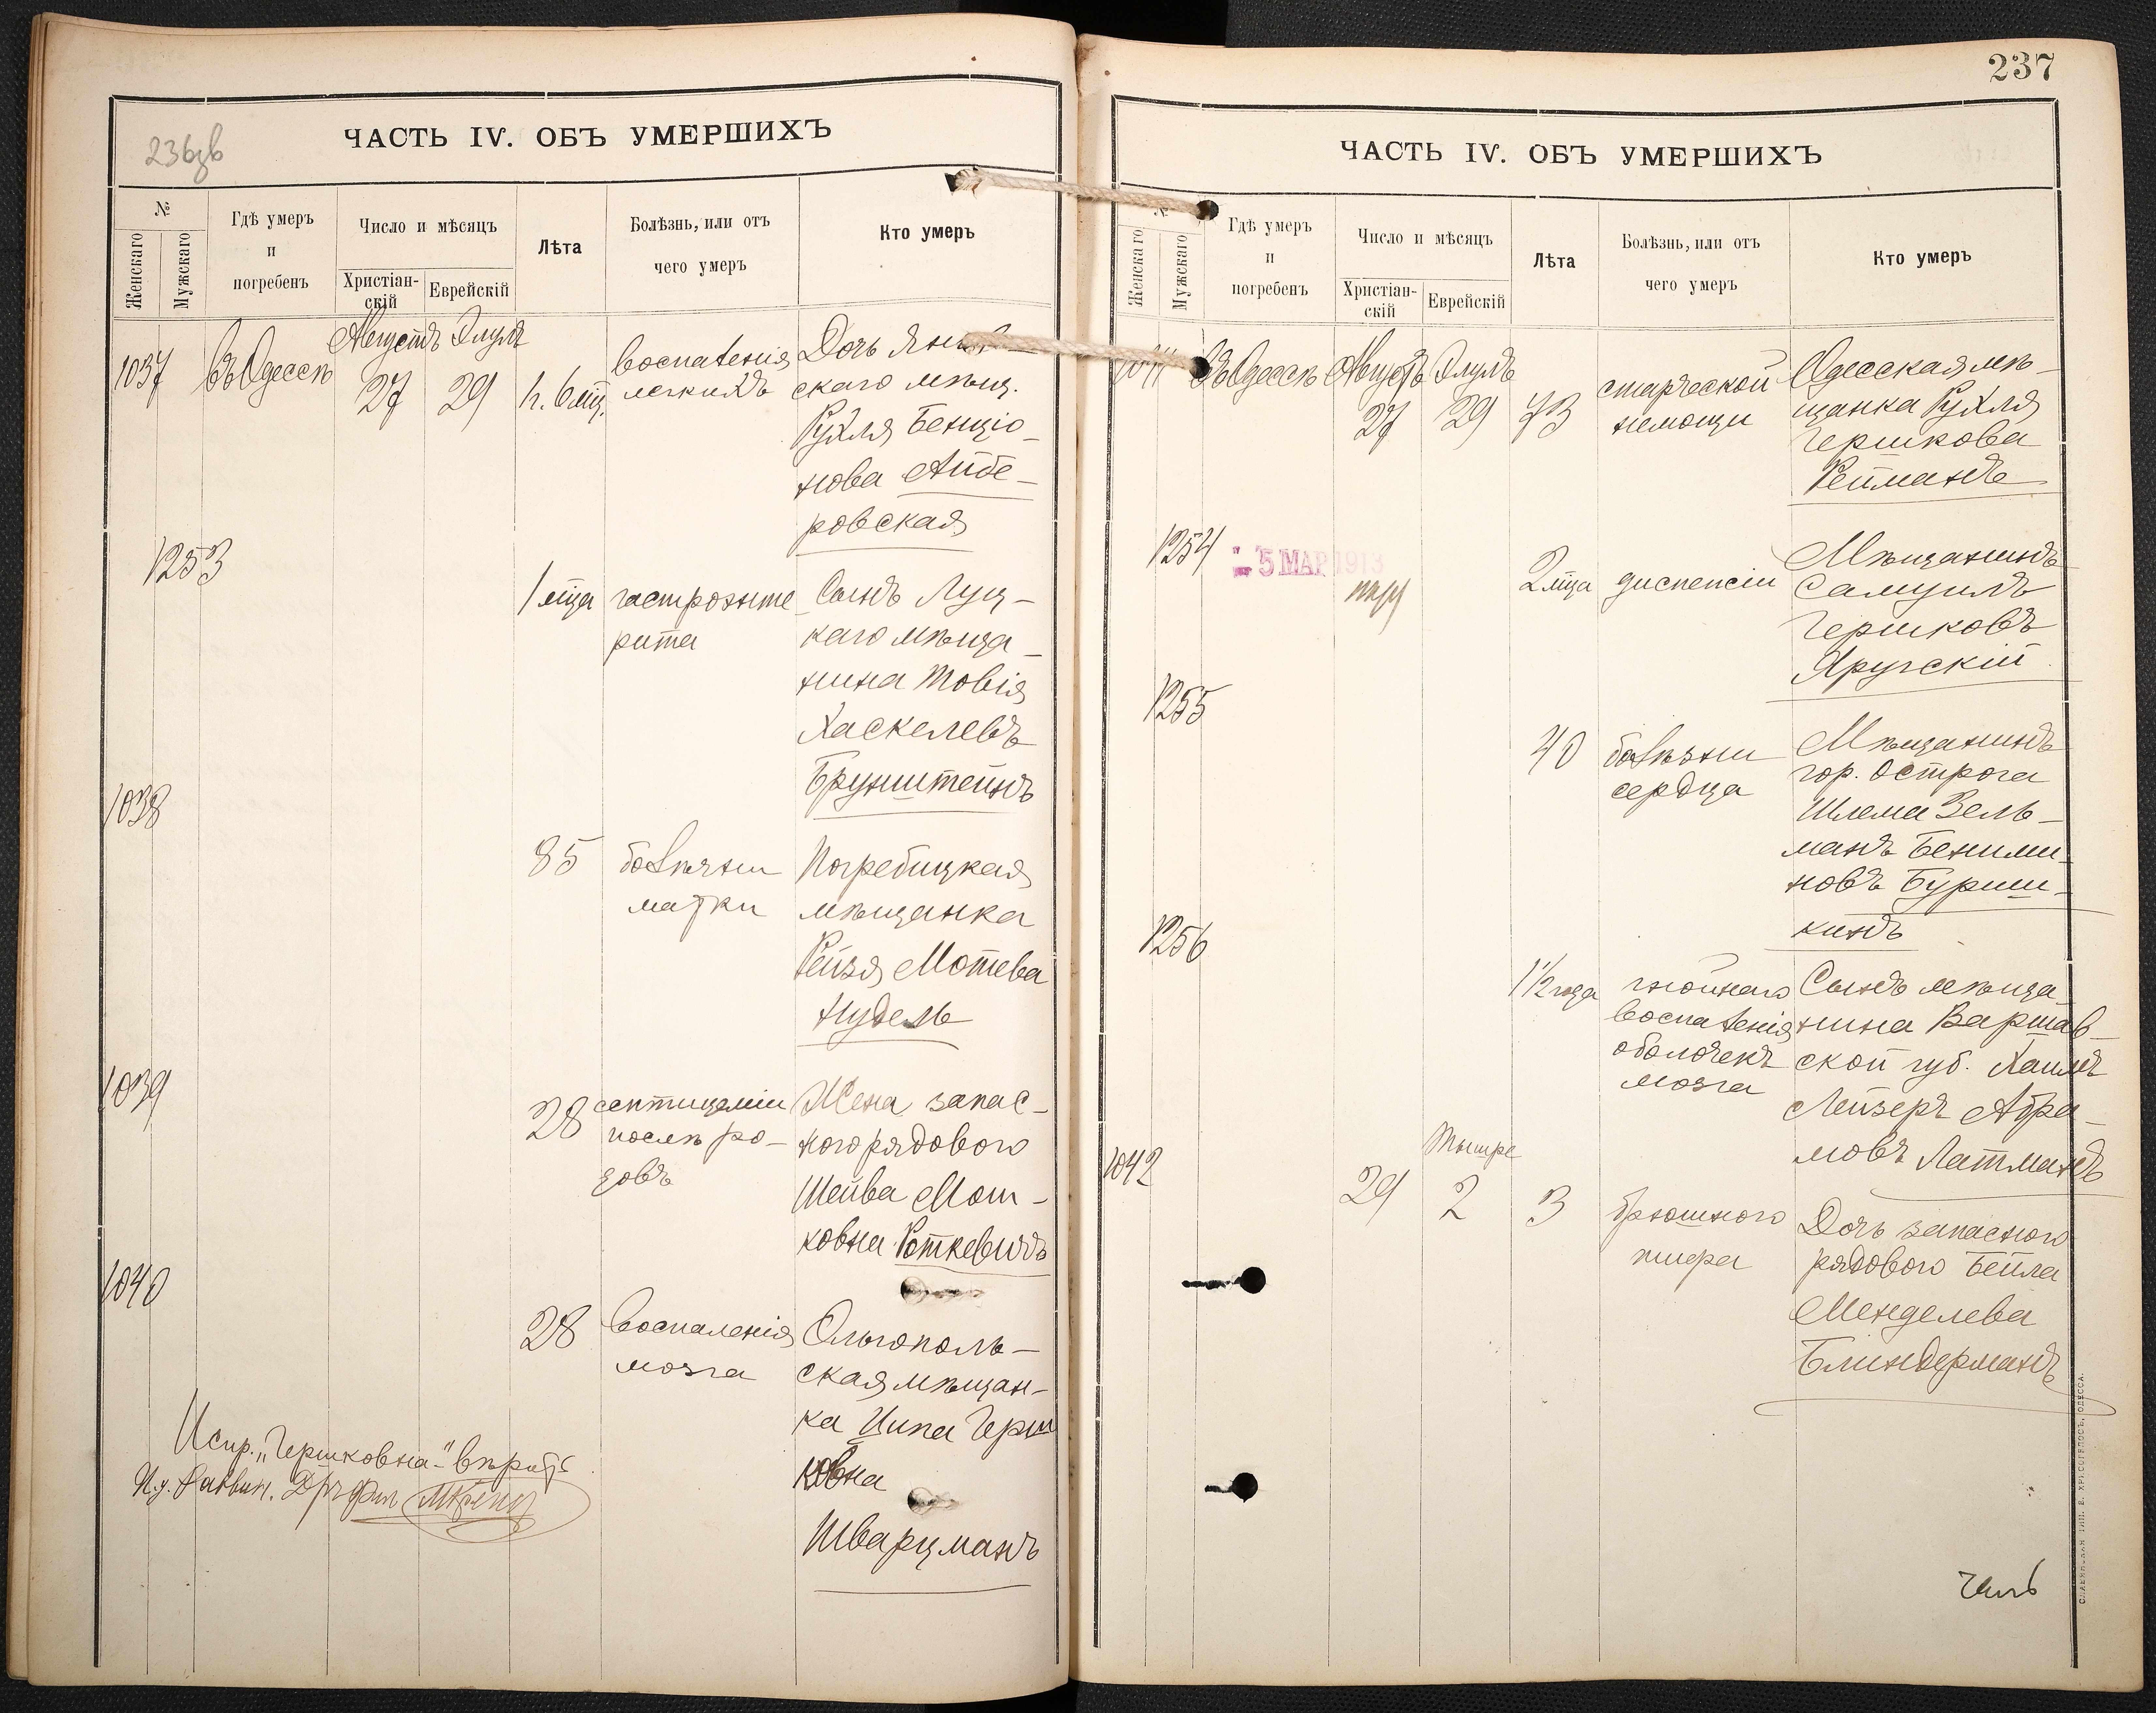 236зв
ЧАСТЬ IV. ОБЪ УМЕРШИХЪ
№
Женскаго
Мужскаго
Гдѣ умеръ
и
погребенъ
Число и мѣсяцъ
Христіан-
скій
Еврейскій
Лѣта
Болѣзнь, или отъ
чего умеръ
Кто умеръ
1037
Въ Одессѣ
Августъ Элулъ
27 29
воспаленія
легкихъ
Дочь
скаго мѣщ.
Рухля Бенціо-
нова Айбе-
ровская
1253
1 мѣц
гастроэнте
рита
Сынъ Луц-
каго мѣща-
нина Товія
Хаскелевъ
Брунштейнъ
1038
85
болѣзни
матки
Погребицкая
мѣщанка
Рейзя Мотева
Нудель
1039
28
септицеміи
послѣ ро-
довъ
Жена запас-
ного рядового
Шейва Мош-
ковна Роткевичъ
1040
28
воспаленія
мозга
Ольгополь-
ская мѣщан-
ка Ципа Герш
ковна
Шварцманъ
Испр. „Гершковна" вѣрить
И.д. Раввин. Д-ръ фил
237
ЧАСТЬ IV. ОБЪ УМЕРШИХЪ
№
Женскаго
Мужскаго
Гдѣ умеръ
и
погребенъ
Число и мѣсяцъ
Христіан-
скій
Еврейскій
Лѣта
Болѣзнь, или отъ
чего умеръ
Кто умеръ
1041
Въ Одессѣ
Августъ Элулъ
27 29
73
старческой
немощи
Одесская мѣ-
щанка Рухля
Гершкова
Рейманъ
1254
5 МАР 1913
2 мѣца
диспепсіи
Мѣщанинъ
Самуилъ
Гершковъ
Яругскій
1255
40
болѣзни
сердца
Мѣщанинъ
гор. Острога
Шлема Зель-
манъ Беними-
новъ Бурши-
кинъ
1256
1 1/2 года
гнойнаго
воспаленія
оболочекъ
мозга
Сынъ мѣща-
нина Варшав-
ской губ. Хаимъ
Лейзеръ Абра-
мовъ Латманъ
1042
Тышре
29 2
3
брюшного
тифа
Дочь запасного
рядового Бейла
Менделева
Блиндерманъ
СЛАВЯНСКАЯ ТИП. Е. ХРИСОГЕЛОСЪ, ОДЕССА.